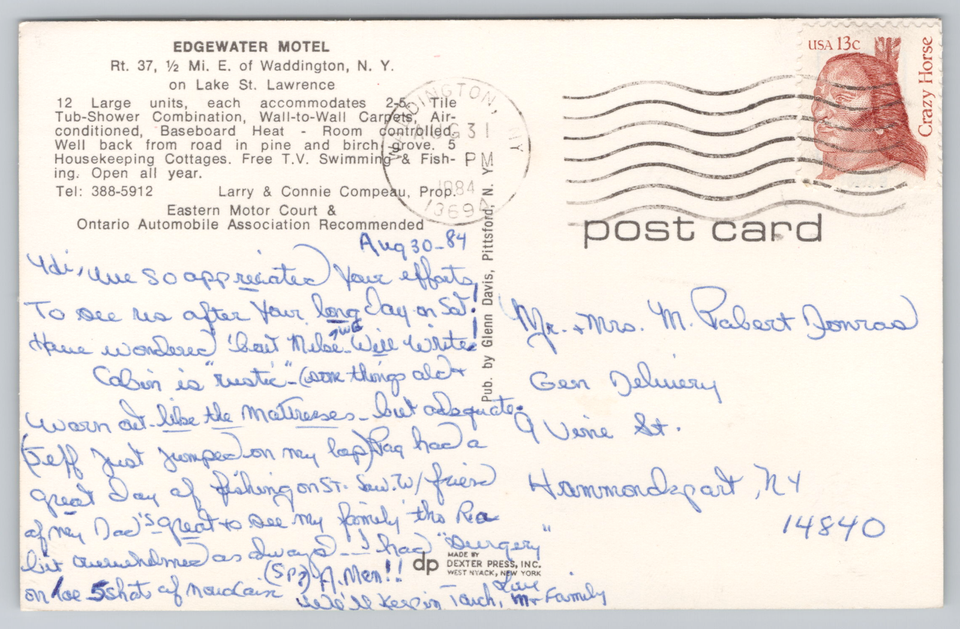 EDGEWATER MOTEL
Rt. 37, ½ Mi. E. of Waddington, N. Y.
on Lake St. Lawrence
12 Large units, each accommodates 2-5. Tile
Tub-Shower Combination, Wall-to-Wall Carpets, Air-
conditioned, Baseboard Heat - Room controlled.
Well back from road in pine and birch grove. 5
Housekeeping Cottages. Free T.V. Swimming & Fish-
ing. Open all year.
Tel: 388-5912 Larry & Connie Compeau, Prop.
Eastern Motor Court &
Ontario Automobile Association Recommended
Aug 30-84
Hi, We so appreciated your efforts
To see us after your long day on Sat!
Have wondered 'bout We Will Write!
Cabin is "rustic" - (some things old +
worn out - like the mattresses - but adequate.
(Jeff just jumped on my lap) had a
great day of fishing on St. Law. w/ friend
of my Dad's great to see my family tho
but overwhelmed as always - I had "Surgery"
on toe 5 shots of (Sp?) A.Men!!
We'll Keep in Touch, Love Family
Pub. by Glenn Davis, Pittsford, N. Y.
dp
MADE BY
DEXTER PRESS, INC.
WEST NYACK, NEW YORK
WADDINGTON, NY
AUG 31
PM
1984
13694
USA 13c
Crazy Horse
post card
Mr. + Mrs. M. Robert
Gen Delivery
9 Vine St.
Hammondsport, NY
14840